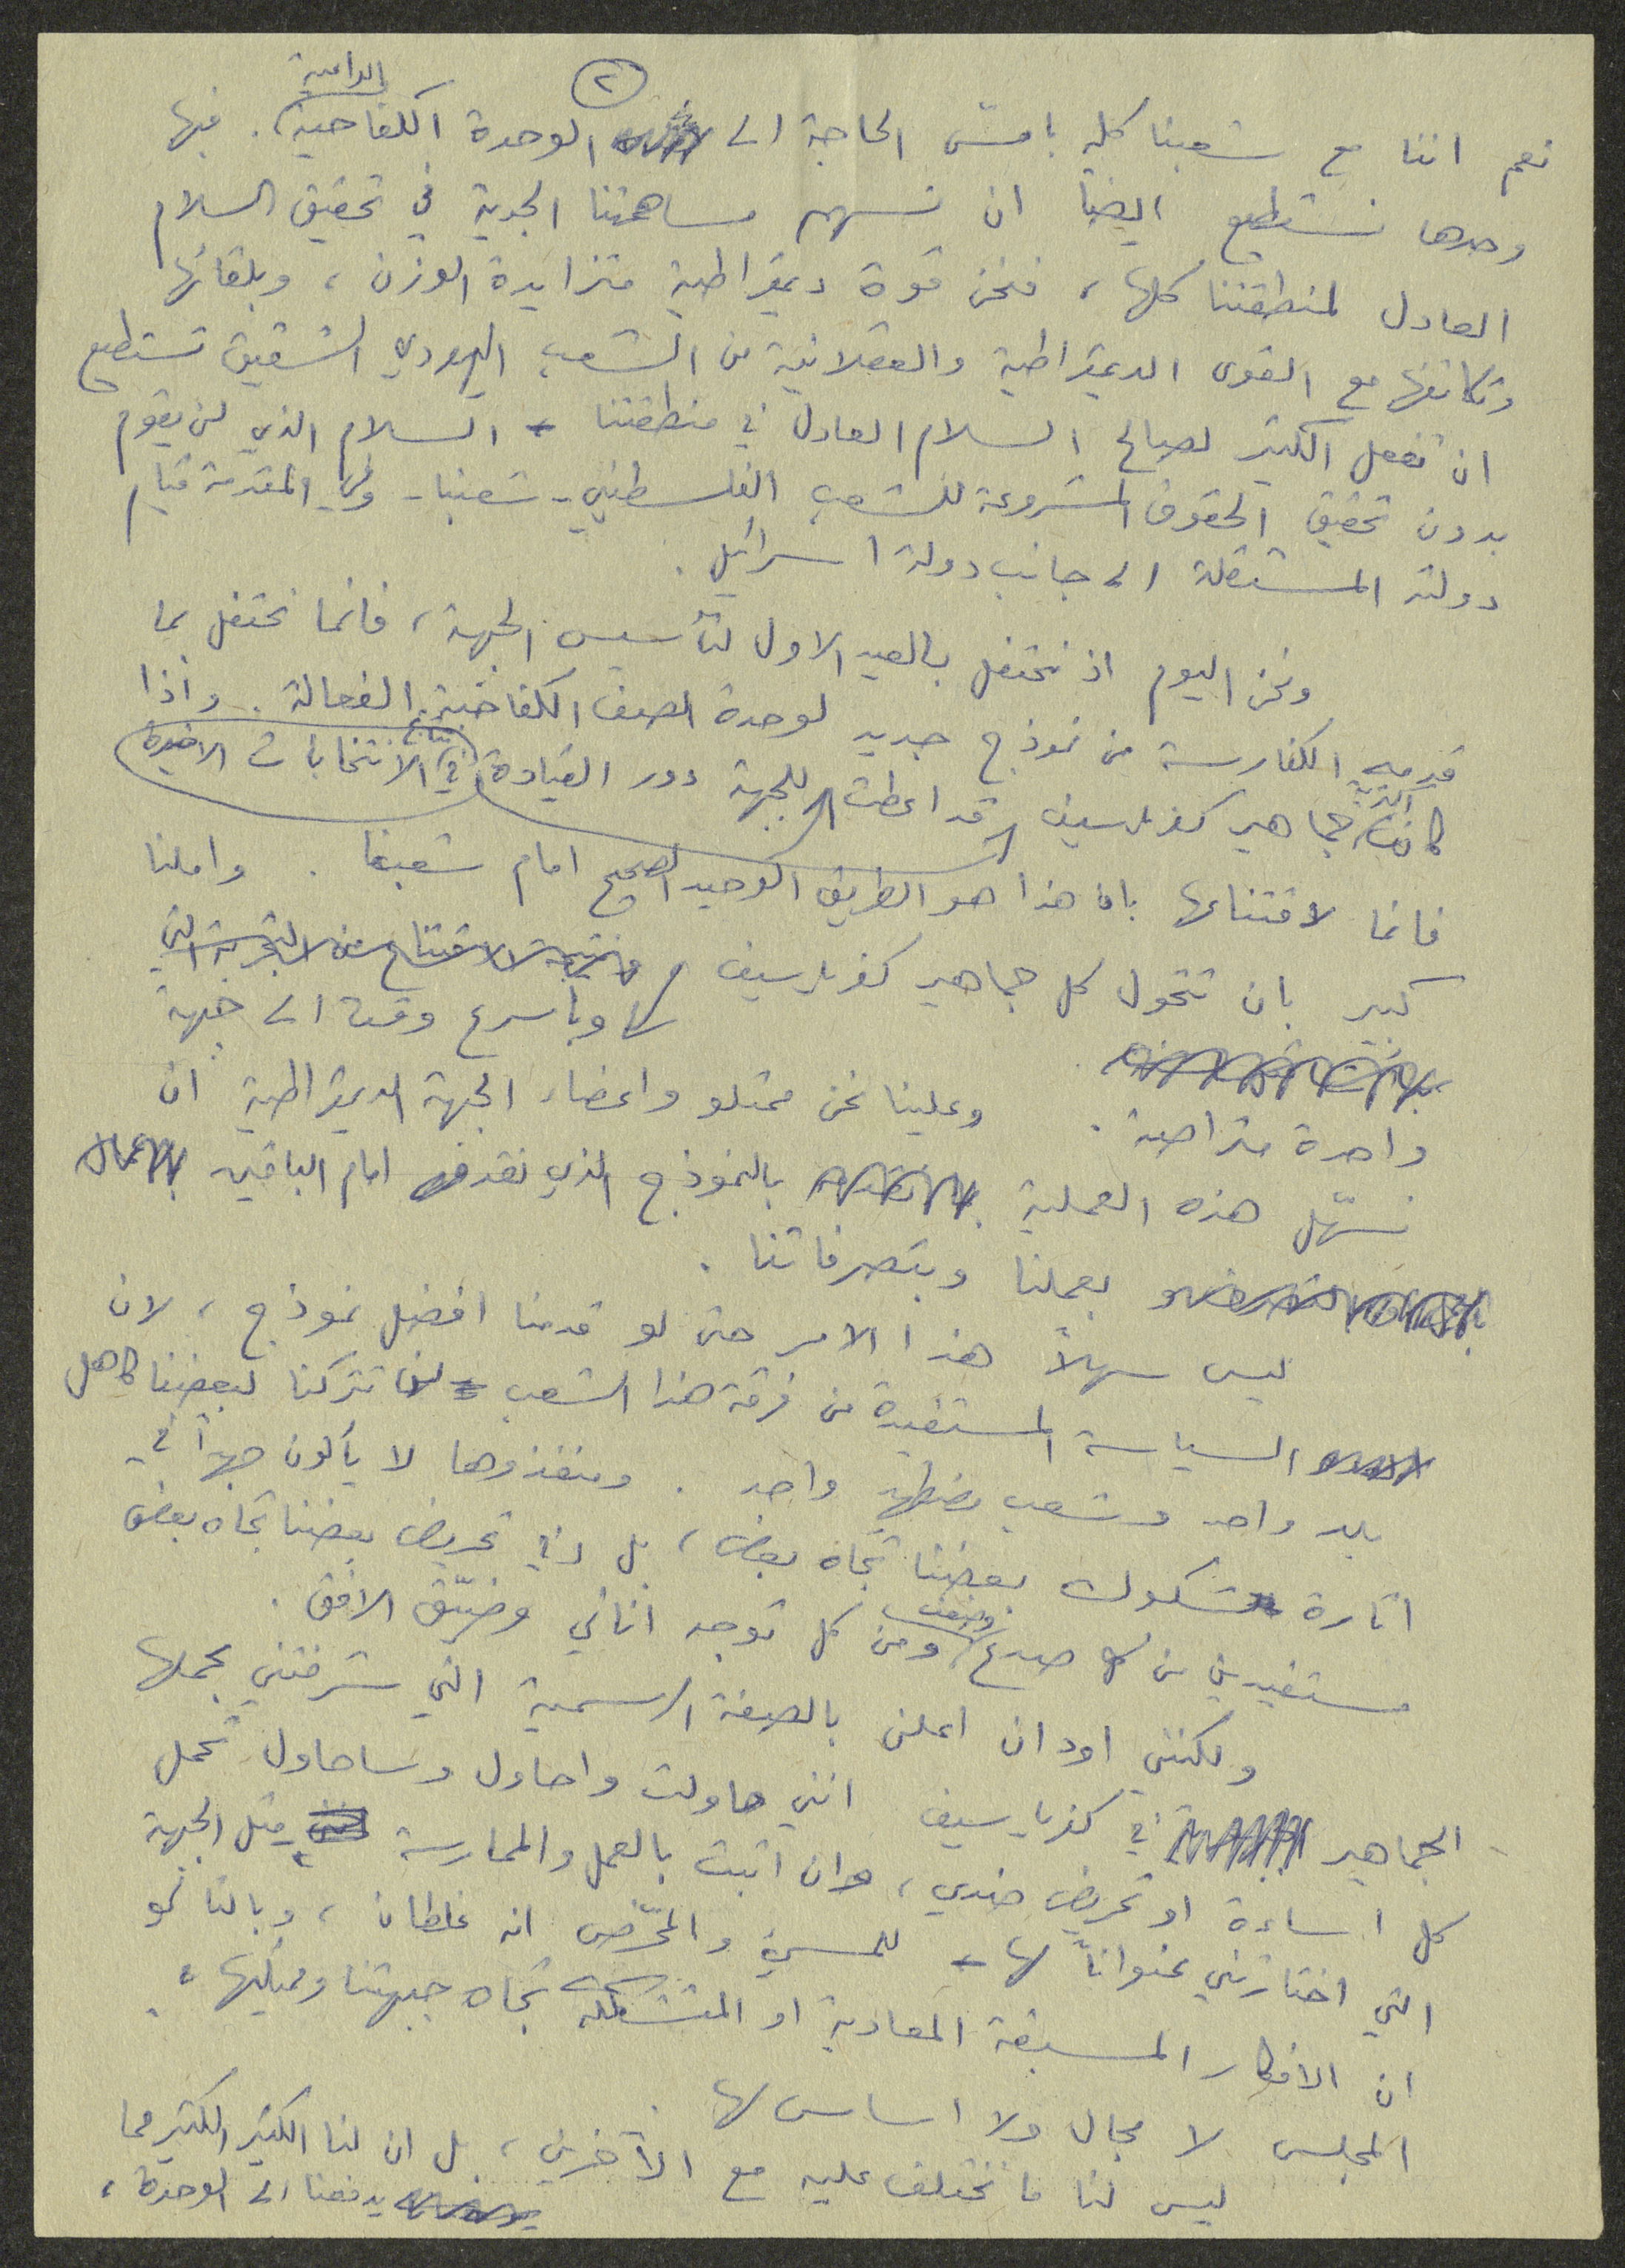 ٢
نعم اننا مع شعبنا كله بامسّ الحاجة الى الوحدة الكفاحية الواعية. فبها
وحدها نستطيع ايضاً ان نسهم مساهمتنا الجدية في تحقيق السلام
العادل لمنطقتنا كلها، فنحن قوة ديمقراطية متزايدة الوزن، وبلقائها
وتكاتفها مع القوى الديمقراطية والعقلانية من الشعب اليهودي الشقيق تستطيع
ان تفعل الكثير لصالح السلام العادل في منطقتنا - السلام الذي لن يقوم
بدون تحقيق الحقوق المشروعة للشعب الفلسطيني - شعبنا - وفي المقدمة قيام
دولته المستقلة الى جانب دولة اسرائيل.
ونحن اليوم اذ نحتفل بالعيد الاول لتأسيس الجبهة، فانما نحتفل بما
قدمه الكفارسة من نموذج جديد لوحدة الصف الكفاحية الفعالة. واذا
كانت جماهير كفرياسيف قد اعطت للجبهة دور القيادة في الانتخابات الاخيرة
فانما لاقتناعها بان هذا هو الطريق الوحيد الصحيح امام شعبنا. واملنا
كبير بان تتحول كل جماهير كفرياسيف نتيجة لاقتناع من التجربة التي
وباسرع وقت الى جبهة
واحدة متراصة. وعلينا نحن ممثلو واعضاء الجبهة الديمقراطية ان
نسهّل هذه العملية بالنموذج الذي نقدمه امام الباقين
بعملنا وبتصرفاتنا.
ليس سهلاً هذا الامر حتى لو قدمنا افضل نموذج، لان
السياسة المستفيدة من فرقة هذا الشعب لن تتركنا لبعضنا كاهل
بلد واحد وشعب مضطهد واحد. ومنفذوها لا يألون جهداً في
اثارة شكوك بعضنا تجاه بعض، بل وفي تحريض بعضنا تجاه بعض
مستفيدين من كل صدع وضعف ومن كل توجه اناني وضيّق الافق.
ولكنني اود ان اعلن بالصفة الرسمية التي شرفتني بحملها
الجماهير في كفرياسيف انني حاولت واحاول وساحاول تحمل
كل اساءة او تحريض ضدي، وان اثبت بالعمل والممارسة - مثل الجبهة
التي اختارتني عنواناً لها - للمسيء والمحرّض انه غلطان، وبالتالي
ان الافكار المسبقة المعادية او المتشككة تجاه جبهتنا وممثليها في
المجلس لا مجال ولا اساس لها.
ليس لنا ما نختلف عليه مع الآخرين، بل ان لنا الكثير الكثير مما
يدفعنا الى الوحدة،